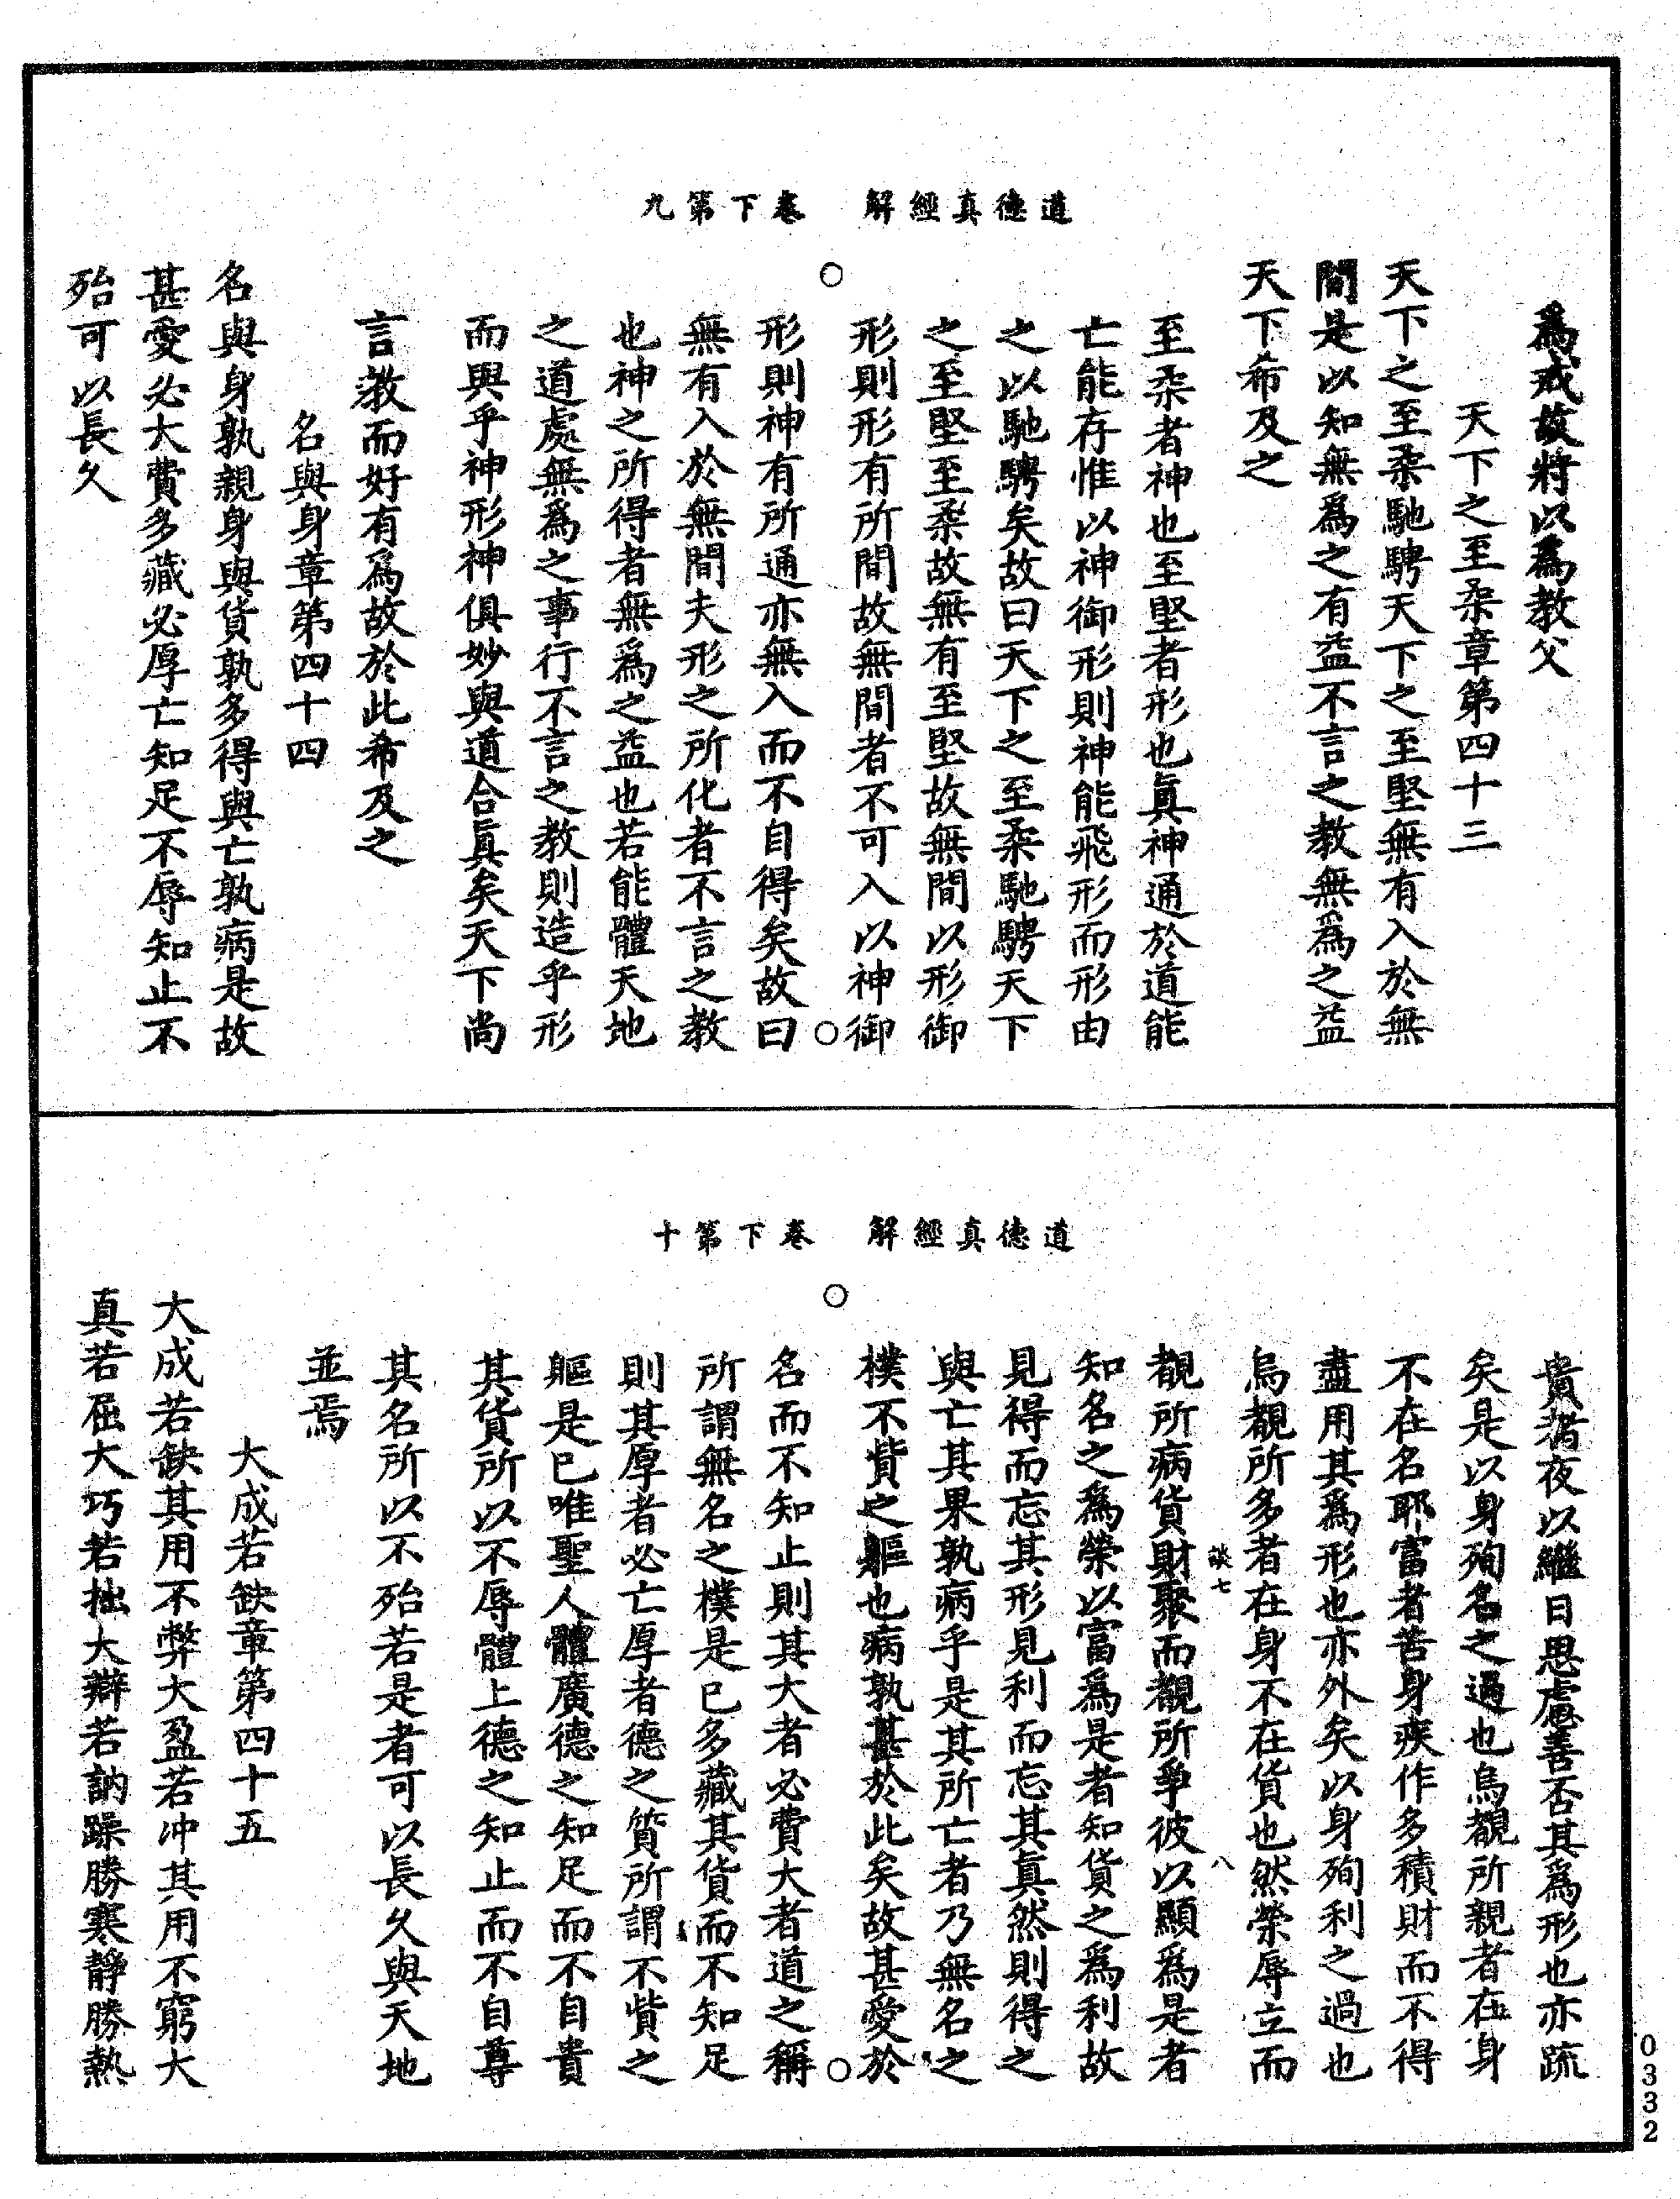 道德真經解　卷下第九
爲戒故將以爲教父
天下之至柔章第四十三
天下之至柔馳騁天下之至堅無有入於無
間是以知無爲之有益不言之教無爲之益
天下希及之
至柔者神也至堅者形也眞神通於道能
亡能存惟以神御形則神能飛形而形由
之以馳騁矣故曰天下之至柔馳騁天下
之至堅至柔故無有至堅故無間以形御
形則形有所間故無間者不可入以神御
形則神有所通亦無入而不自得矣故曰
無有入於無間夫形之所化者不言之教
也神之所得者無爲之益也若能體天地
之道處無爲之事行不言之教則造乎形
而與乎神形神俱妙與道合眞矣天下尚
言教而好有爲故於此希及之
名與身章第四十四
名與身孰親身與貨孰多得與亡孰病是故
甚愛必大費多藏必厚亡知足不辱知止不
殆可以長久
道德真經解　卷下第十
貴者夜以繼日思慮善否其爲形也亦疏
矣是以身殉名之過也烏覩所親者在身
不在名耶富者苦身疾作多積財而不得
盡用其爲形也亦外矣以身殉利之過也
烏覩所多者在身不在貨也然榮辱立而
談七　八
覩所病貨財聚而覩所爭彼以顯爲是者
知名之爲榮以富爲是者知貨之爲利故
見得而忘其形見利而忘其眞然則得之
與亡其果孰病乎是其所亡者乃無名之
樸不貲之軀也病孰甚於此矣故甚愛於
名而不知止則其大者必費大者道之稱
所謂無名之樸是已多藏其貨而不知足
則其厚者必亡厚者德之質所謂不貲之
軀是已唯聖人體廣德之知足而不自貴
其貨所以不辱體上德之知止而不自尊
其名所以不殆若是者可以長久與天地
並焉
大成若缺章第四十五
大成若缺其用不弊大盈若冲其用不窮大
真若屈大巧若拙大辯若訥躁勝寒靜勝熱
0332